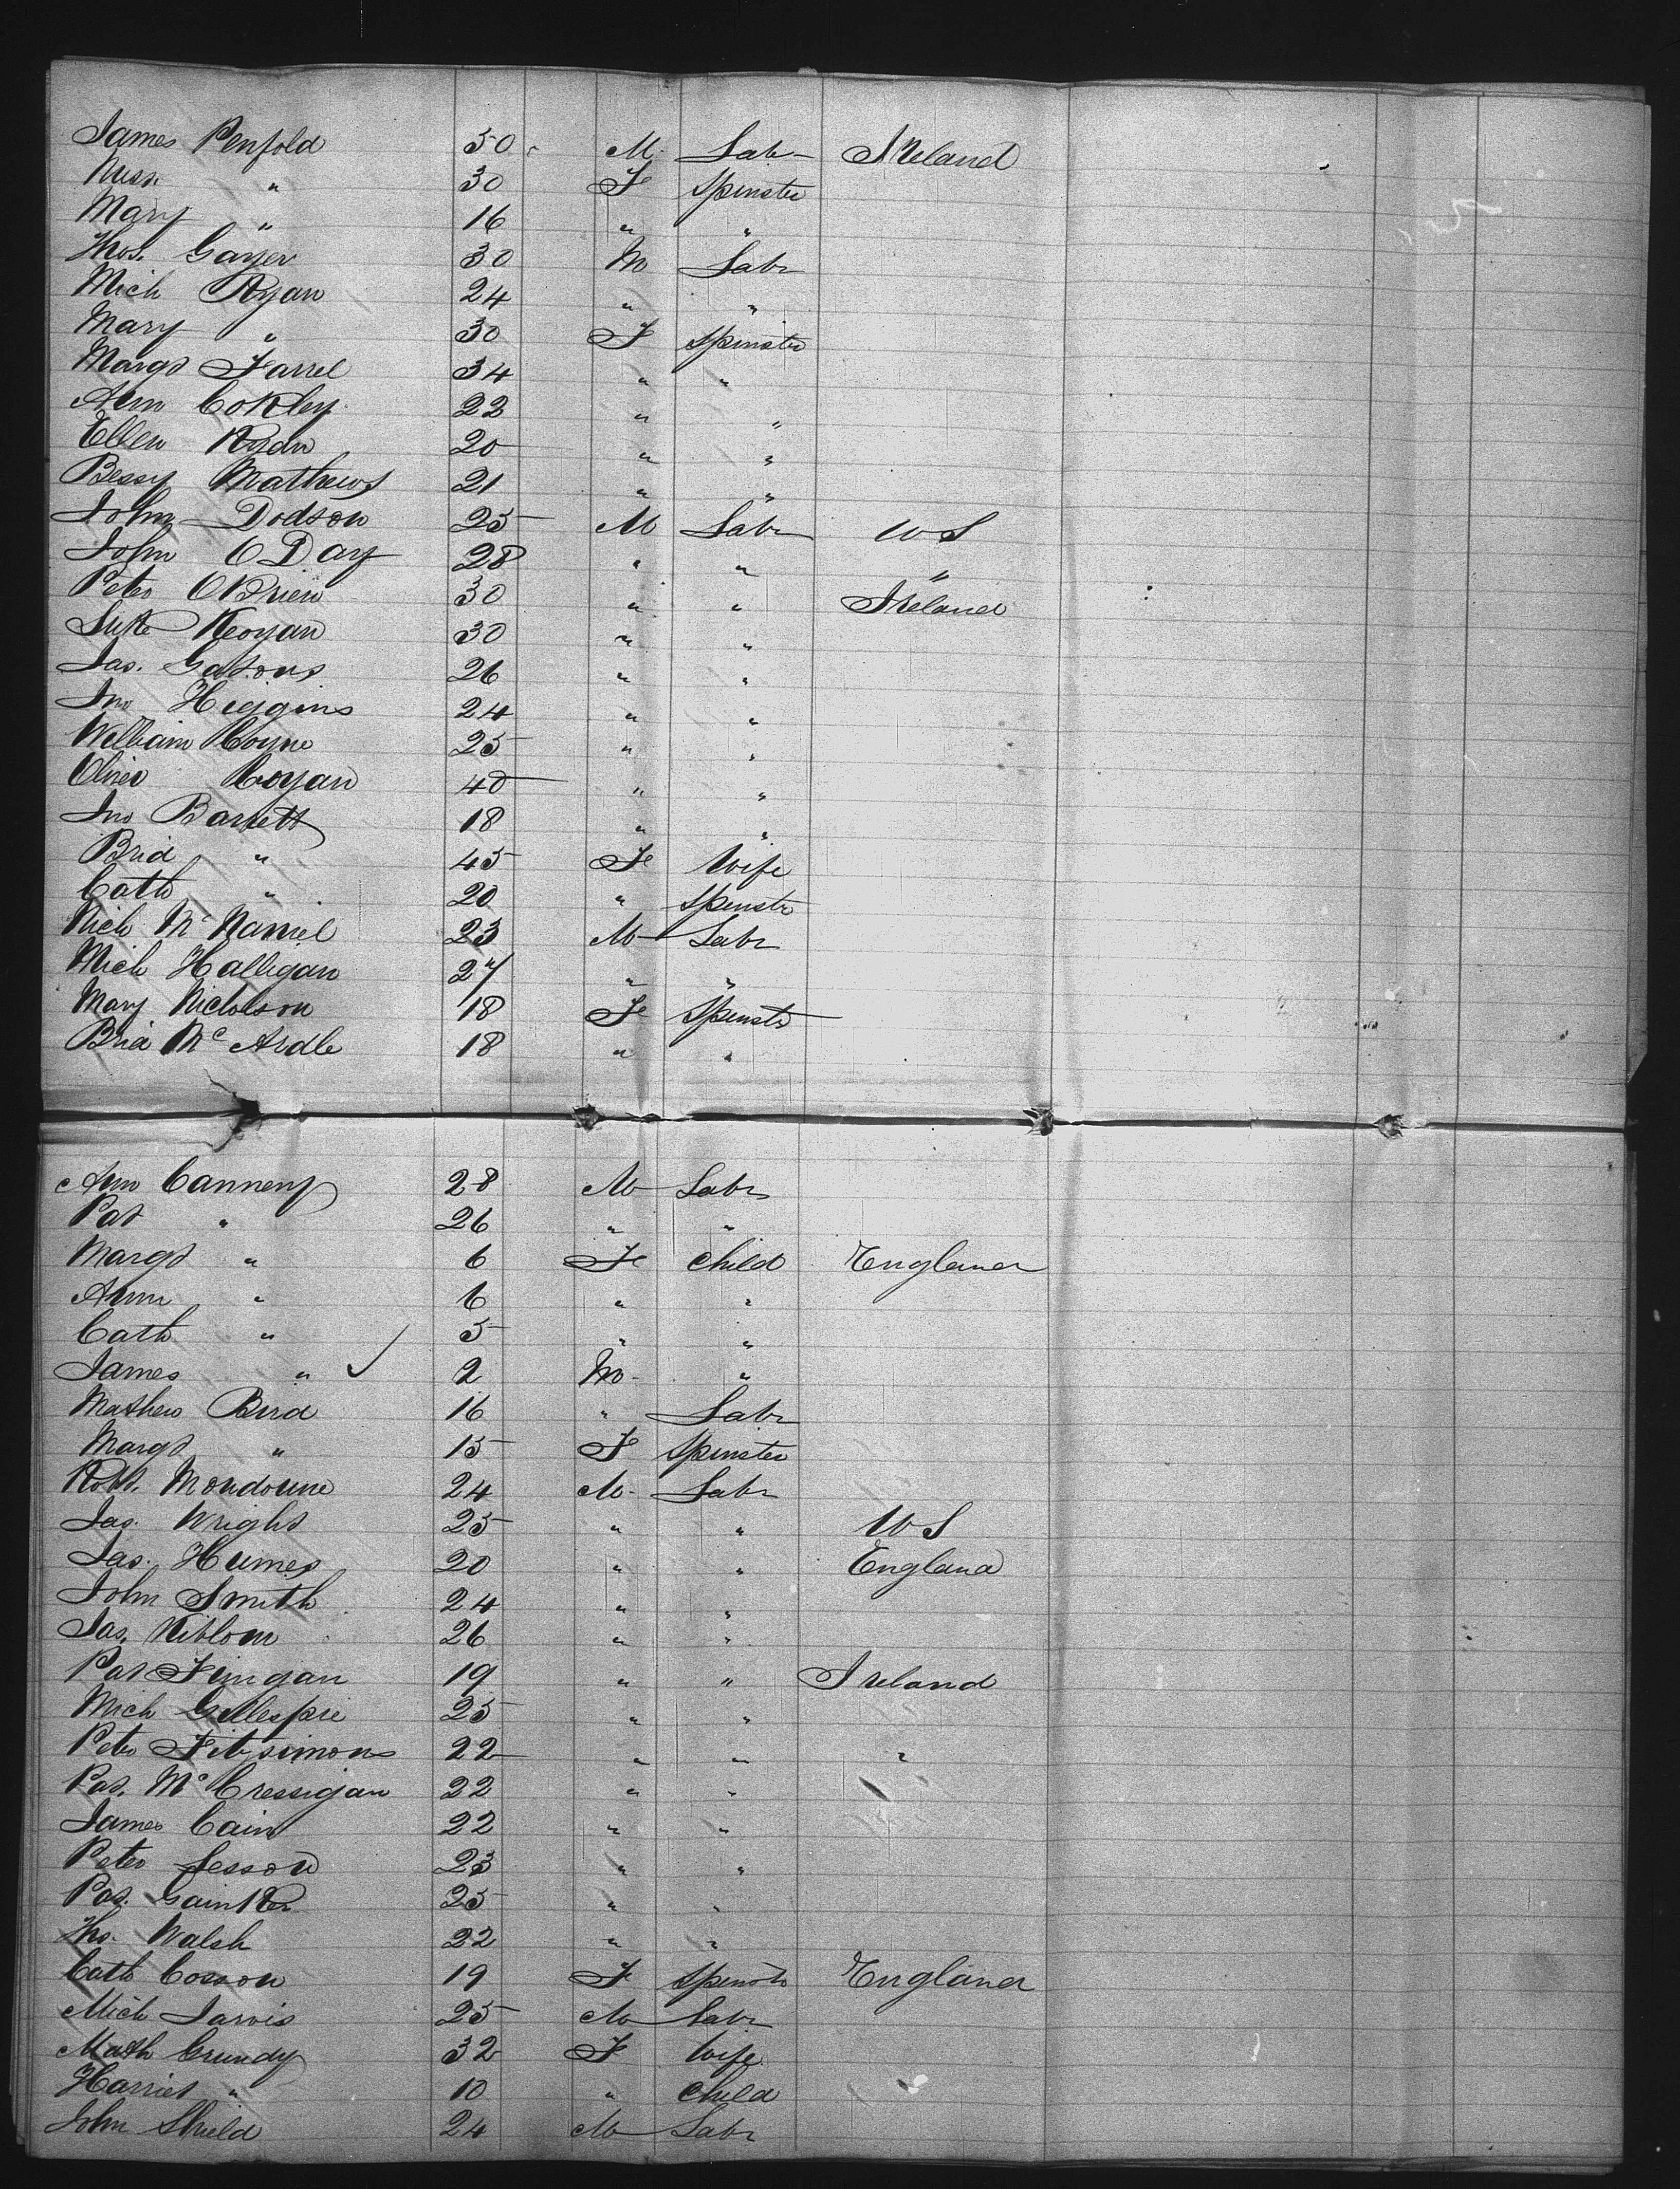 James Penfold 50 M Labr Ireland
" 30 F Spinster
Mary " 16 " "
Thos. Gayer 30 M Labr
Mich Ryan 24 " "
Mary " 30 F Spinster
Margt Farrel 34 " "
Ann Cokley 22 " "
Ellen Ryan 20 " "
Bessy Mathews 21 " "
John Dodson 25 M Labr US
John O Day 28 " " "
Peter OBrien 30 " " Ireland
Luke Keoyan 30 " "
Jas. Gatons 26 " "
Jno Higgins 24 " "
William Coyne 25 " "
Oliver Coyan 40 " "
Jno Barrett 18 " "
Brid " 45 F Wife
Cath " 20 " Spinstr
Nich Mc Namiel 23 M Labr
Mich Halligan 27 " "
Mary Nicholson 18 F Spinstr
Brid Mc Ardle 18 " "
Ann Canneny 28 M Labr
Pat " 26 " "
Margt " 6 F Child England
Ann " 6 " "
Cath " 5 " "
James " ✓ 2 M "
Mathew Bird 16 " Labr
Margt " 15 F Spinster
Robt. Mondoune 24 M Labr
Jas. Wright 25 " " US
Jas. Humes 20 " " England
John Smith 24 " "
Jas. Niblom 26 " "
Pat Fingan 19 " " Ireland
Mich Gillespie 25 " "
Peter Fitzsimons 22 " " "
Pat. Mc Cressigan 22 " "
James Cain 22 " "
Peter Lesson 23 " "
Pat. 25 " "
Tho. Walsh 22 " "
Cath Cosson 19 F Spinstr England
Mich Jarvis 25 M Labr
Math Crundy 32 F Wife
Harriet " 10 " Child
John Shield 24 M Labr